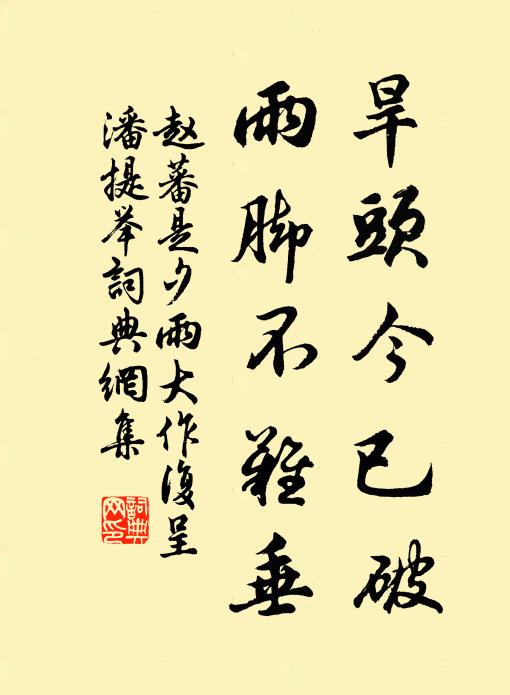 旱頭今已破
雨脚不難垂
赵蕃是夕雨大作復呈
潘提举詞典網集
詞典網印